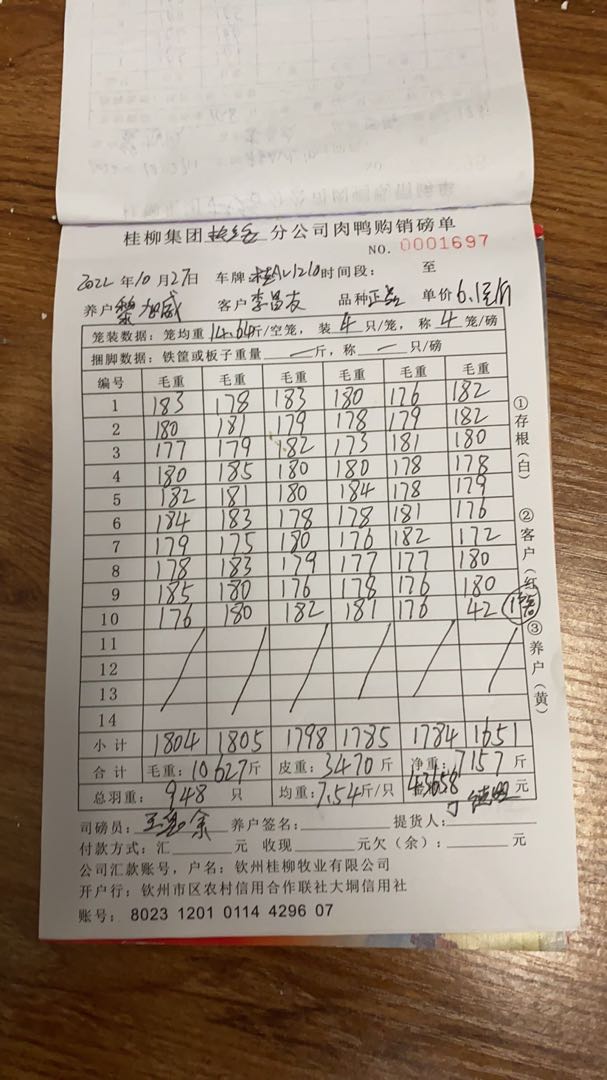 桂柳集团 分公司肉鸭购销磅单
NO. 0001697
2022年10月27日 车牌:桂AV1210时间段: 至
养户黎加威 客户李昌友 品种正品 单价6.1元/斤
笼装数据: 笼均重14.64斤/空笼, 装4只/笼, 称4笼/磅
捆脚数据: 铁筐或板子重量 — 斤, 称 — 只/磅
编号 毛重 毛重 毛重 毛重 毛重 毛重
1 183 178 183 180 176 182
2 180 181 179 178 179 182
3 177 179 182 173 181 180
4 180 185 180 180 178 178
5 182 181 180 184 178 179
6 184 183 178 178 181 176
7 179 175 180 176 182 172
8 178 183 179 177 177 180
9 185 180 176 178 176 180
10 176 180 182 181 176 42
11
12
13
14
小计 1804 1805 1798 1785 1784 1651
合计 毛重:10627斤 皮重:3470斤 净重:7157斤
总羽重: 948 只 均重:7.54斤/只 43658 元
司磅员: 养户签名: 提货人:
付款方式:汇 元 收现 元欠(余): 元
公司汇款账号,户名:钦州桂柳牧业有限公司
开户行:钦州市区农村信用合作联社大垌信用社
账号: 8023 1201 0114 4296 07
①存根(白)
②客户(红)
③养户(黄)